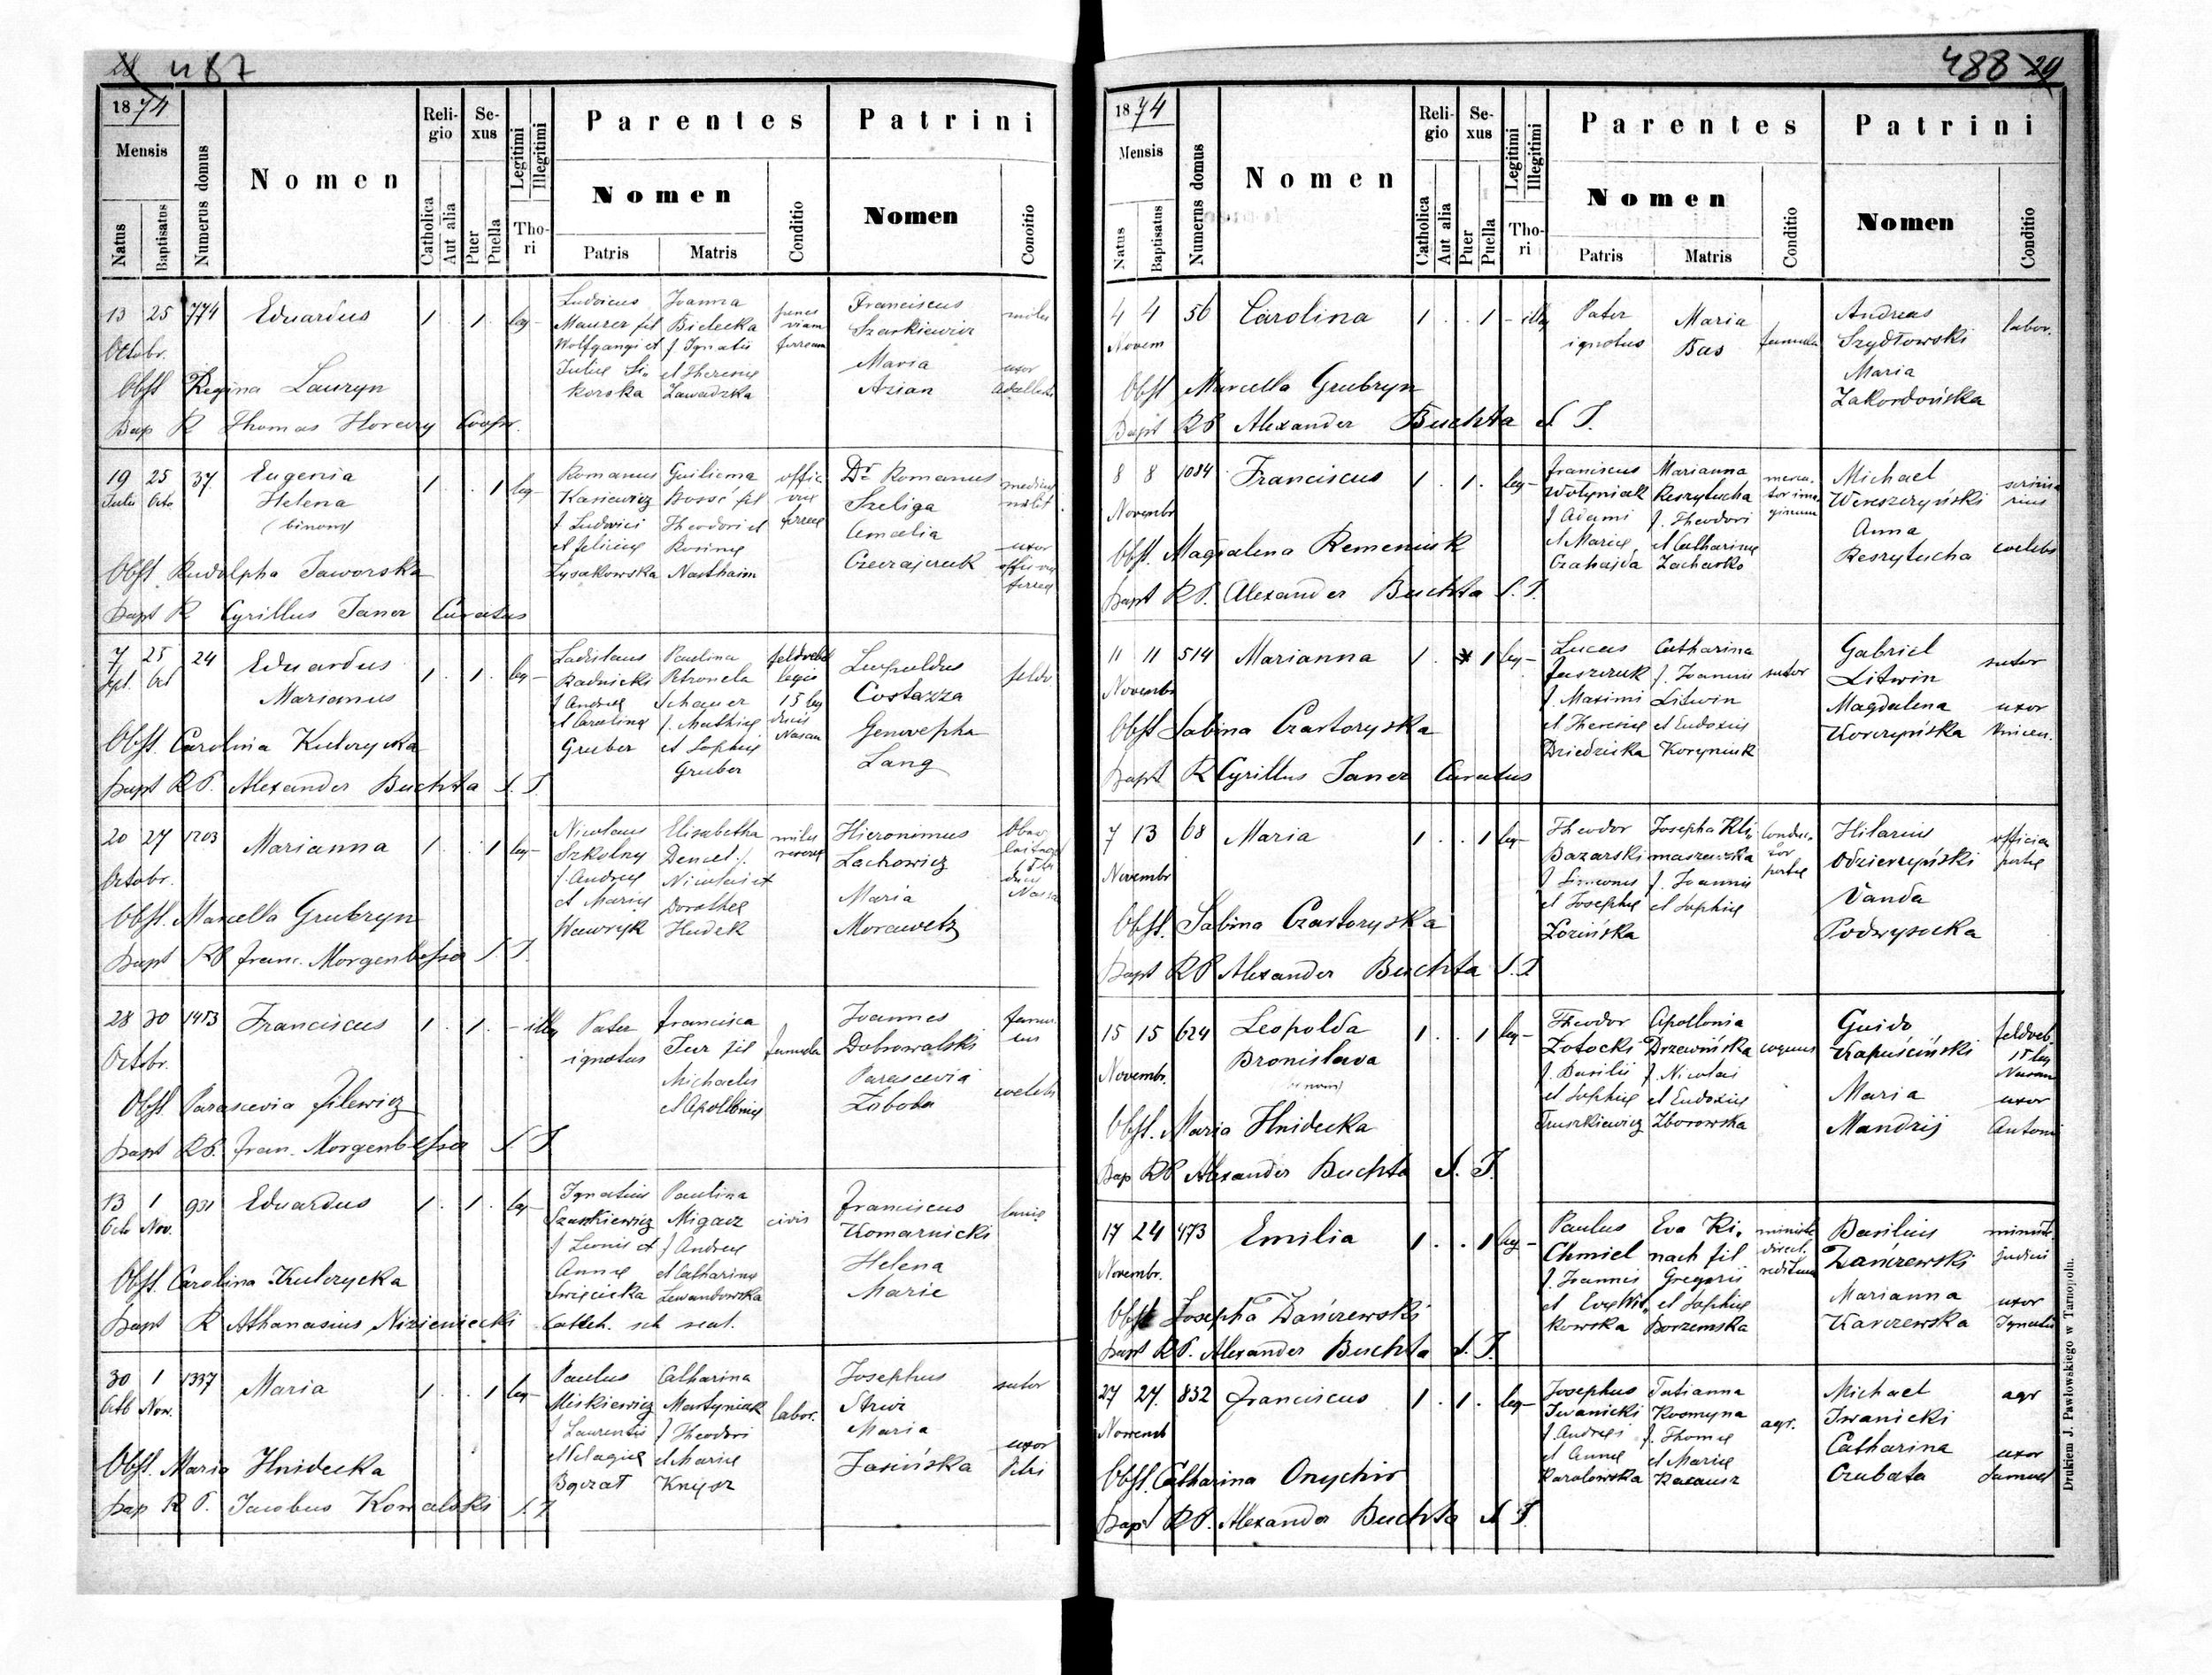 28 487
1874
Mensis
Natus
Baptisatus
Numerus domus
Nomen
Religio
Catholica
Aut alia
Sexus
Puer
Puella
Legitimi
Illegitimi
Thori
Parentes
Nomen
Patris
Matris
Conditio
Patrini
Nomen
Conoitio
13 25 774 Eduardus 1 . 1 . leg-
Octobr.
Ludvicus
Maurer fil
Wolfgangi et
Juliæ Si-
korska
Joanna
Bielecka
f Ignatii
et Theresiæ
Zawadzka
penes
viam
ferream
Franciscus
Szarkiewicz
Maria
Azian
miles
uxor
Obst Regina Lauryn
Bap R Thomas Horczy Coop.
19 25 37 Eugenia 1 . . 1 leg-
Julii Octo Helena
(binom)
Romanus
Kaniewicz
f Ludovici
et Feliciæ
Lysakowska
Guiliema
Bossé fil
Theodori et
Rosinæ
Nasthaim
offic
viæ
ferreæ
Dr. Romanus
Szeliga
Amalia
Czerajczuk
medicus
milit.
uxor
offic viæ
ferreæ
Obst Rudolpha Jaworska
Bapt R Cyrillus Janer Curatus
7 25 24 Eduardus 1 . 1 . leg-
Spt. Oct Marianus
Ladislaus
Radnicki
f Andreæ
et Carolinæ
Gruber
Paulina
Petronela
Schauer
f. Mathiæ
et Sophiæ
Gruber
feldvebl
legis
15 leg
ducis
Nasau
Leopoldus
Costazza
Genovepha
Lang
feldv
Obst. Carolina Kulczycka
Bapt RP. Alexander Buchta S. J.
20 27 1203 Marianna 1 . . 1 leg-
Octobr.
Nicolaus
Szkolny
f. Andreæ
et Mariæ
Wawryk
Elisabetha
Dencel f.
Nicolai et
Dorotheæ
Hudek
miles
reservæ
Hieronimus
Lachowicz
Maria
Morawetz
Obst. Marcella Grubryn
Bapt RP Franc. Morgenbesser S. J.
28 30 1453 Franciscus 1 . 1 . - illeg
Octobr.
Pater
ignotus
Francisca
Jur fil
Michaelis
et Apolloniæ
famula
Joannes
Dobrowolski
Parascevia
Zoboda
famu-
lus
coelebs
Obst. Parascevia Filewicz
Bapt RP. Fran. Morgenbesser S J
13 1 931 Eduardus 1 . 1 . leg-
Octo Nov.
Ignatius
Szarkiewicz
f Leonis et
Annæ
Swięcicka
Paulina
Migacz
f Andreæ
et Catharinæ
Lewandowska
civis
Franciscus
Komarnicki
Helena
Marie
lanio
Obst. Carolina Kulczycka
Bapt R Athanasius Nizieniecki Catech. sch real.
30 1 1337 Maria 1 . . 1 leg-
Octb Nov.
Paulus
Miskiewicz
f Laurentii
et Pelagiæ
Catharina
Martyniak
f Theodori
et Mariæ
Knysz
labor.
Josephus
Maria
Jasińska
sutor
uxor
Petri
Obst. Maria Hnidecka
Bap R P. Jacobus Kowalski S. J
488 29
1874
Mensis
Natus
Baptisatus
Numerus domus
Nomen
Religio
Catholica
Aut alia
Sexus
Puer
Puella
Legitimi
Illegitimi
Thori
Parentes
Nomen
Patris
Matris
Conditio
Patrini
Nomen
Conditio
4 4 56 Carolina 1 . . 1 - illeg
Novem
Pater
ignotus
Maria
Bas
famula
Andreas
Szydłowski
Maria
Zakordońska
labor.
Obst Marcella Grubryn
Bapt RP Alexander Buchta S J.
8 8 1084 Franciscus 1 . 1 . leg-
Novembr
Franciscus
Wołyniak
f Adami
et Mariæ
Czahajda
Marianna
Reszytucha
f. Theodori
et Catharinæ
Zacharko
merca-
tor ima-
ginum
Michael
Wereszczyński
Anna
Reszytucha
scrinia
rius
coelebs
Obst. Magdalena Remeniuk
Bapt RP. Alexander Buchta S. J.
11 11 514 Marianna 1 . 1 leg-
Novembr
Lucas
Juszczuk
f. Maximi
et Theresiæ
Dziedzicka
Catharina
f. Joannis
Litwin
et Eudoxiæ
Koryniuk
sutor
Gabriel
Litwin
Magdalena
Korczyńska
sutor
uxor
Vincen.
Obst Sabina Czartoryska
Bapt R Cyrillus Janer Curatus
7 13 68 Maria 1 . . 1 leg-
Novembr
Theodor
Bazarski
f Simeonis
et Josephæ
Łozińska
Josepha Kli-
maszewska
f. Joannis
et Sophiæ
Conduc-
tor
portæ
Hilarius
Odzierzyński
Vanda
Podwysocka
Obst. Sabina Czartoryska
Bapt RP Alexander Buchta S. J
15 15 624 Leopolda 1 . . 1 leg-
Novembr. Bronislava
(binom)
Theodor
Zotocki
f. Basilii
et Sophiæ
Truszkiewicz
Apollonia
Drzewińska
f. Nicolai
et Eudoxiæ
Zborowska
coquus
Guido
Kapuściński
Maria
Mandzij
feldveb.
15 leg
Nasau
uxor
Antoni
Obst. Maria Hnidecka
Bap RP Alexander Buchta S. J.
17 24 473 Emilia 1 . . 1 leg-
Novembr.
Paulus
Chmiel
f. Joannis
et Evæ Wit-
kowska
Eva Ki-
nach fil
Gregorii
et Sophiæ
Borzemska
Basilius
Zańczewski
Marianna
Karczewska
minist.
judicii
uxor
Ignatii
Obst Josepha Dańczewski
Bapt RP. Alexander Buchta S. J.
27 27. 832 Franciscus 1 . 1 . leg-
Novemb
Josephus
Iwanicki
f Andreæ
et Annæ
Karatowska
Tatianna
Kosmyna
f. Thomæ
et Mariæ
agr.
Michael
Iwanicki
Catharina
Czubata
agr
uxor
Samuel
Obst. Catharina Onychir
Bapt RP. Alexander Buchta S J.
Drukiem J. Pawłowskiego w Tarnopolu.